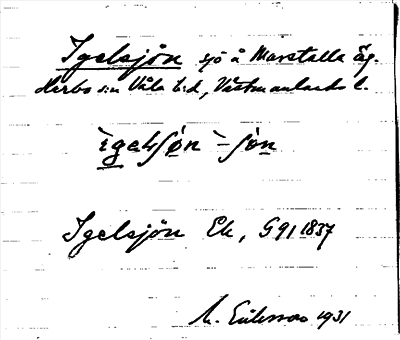 Igelsjön sjö å Marstalla äg.
Härbo sn Våla hd, Västmanlands l.
ìgelsjøn `-sjøn
Igelsjön Ek, G91 1837
M. Eriksson 1931